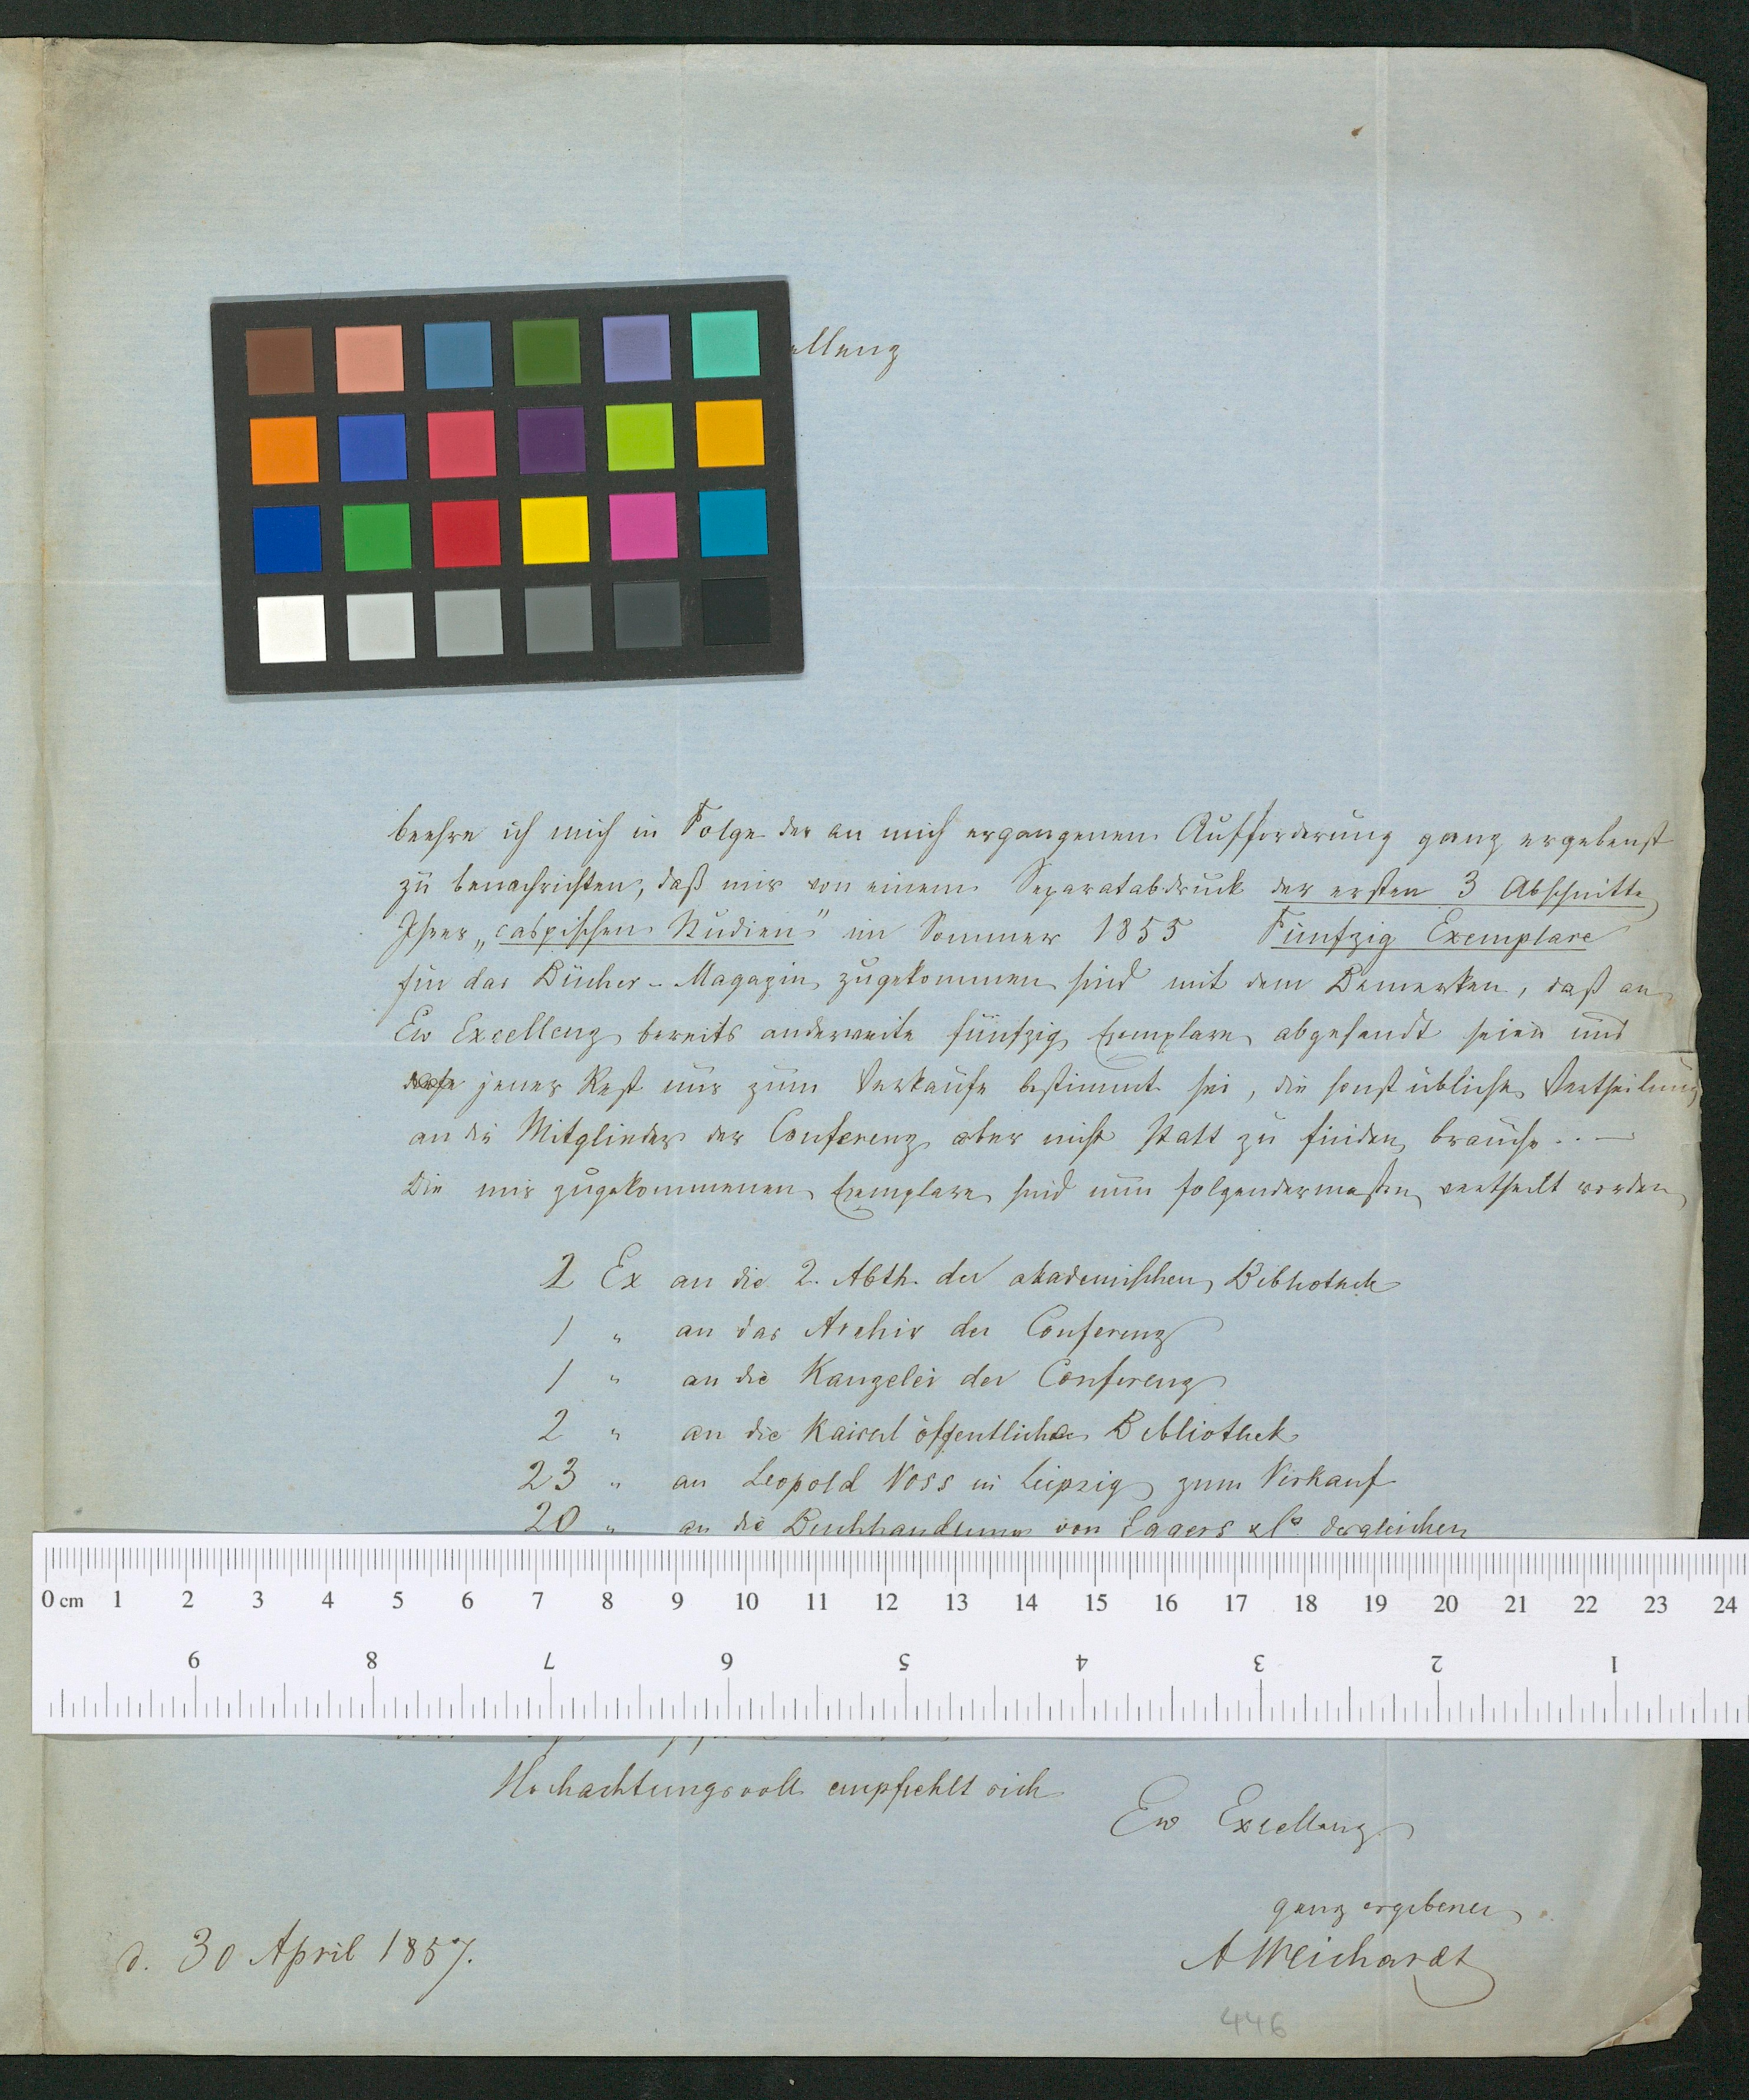 ellenz
beehre ich mich in Folge der an mich ergangenen Aufforderung ganz ergebenst
zu benachrichten, daß mir von einem Separatabdruck der ersten 3 Abschnitte
Ihrer „caspischen Studien" im Sommer 1855 Fünfzig Exemplare
für das Bücher-Magazin zugekommen sind mit dem Bemerken, daß an
Ew Excellenz bereits anderweite fünfzig Exemplare abgesandt seien und
jener Rest nur zum Verkaufe bestimmt sei, die sonst übliche Vertheilung
an die Mitglieder der Conferenz aber nicht statt zu finden brauche. –
Die mir zugekommenen Exemplare sind nun folgendermaßen vertheilt worden
2 Ex an die 2. Abth. der akademischen Bibliothek
1 " an das Archiv der Conferenz
1 " an die Kanzelei der Conferenz
2 " an die Kaiserl öffentliche Bibliothek
23 " an Leopold Voss in Leipzig zum Verkauf
20 " an die Buchhandlung von Eggers & Co dergleichen
0 cm 1 2 3 4 5 6 7 8 9 10 11 12 13 14 15 16 17 18 19 20 21 22 23 24
9 8 7 6 5 4 3 2 1
Hochachtungsvoll empfiehlt sich
Ew Excellenz
ganz ergebener
d. 30 April 1857.
A Weichardt
446